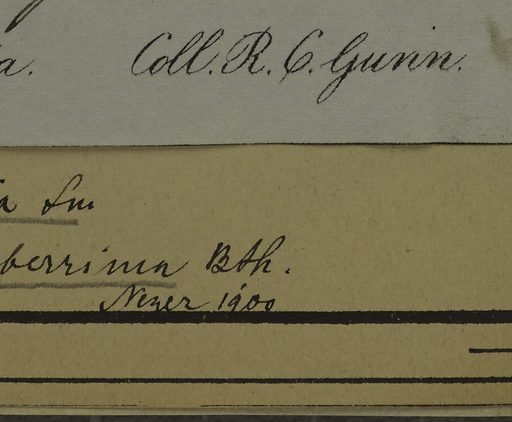 a. Coll. R. C. Gunn.
a Sm
berrima Bth.
Neger 1900